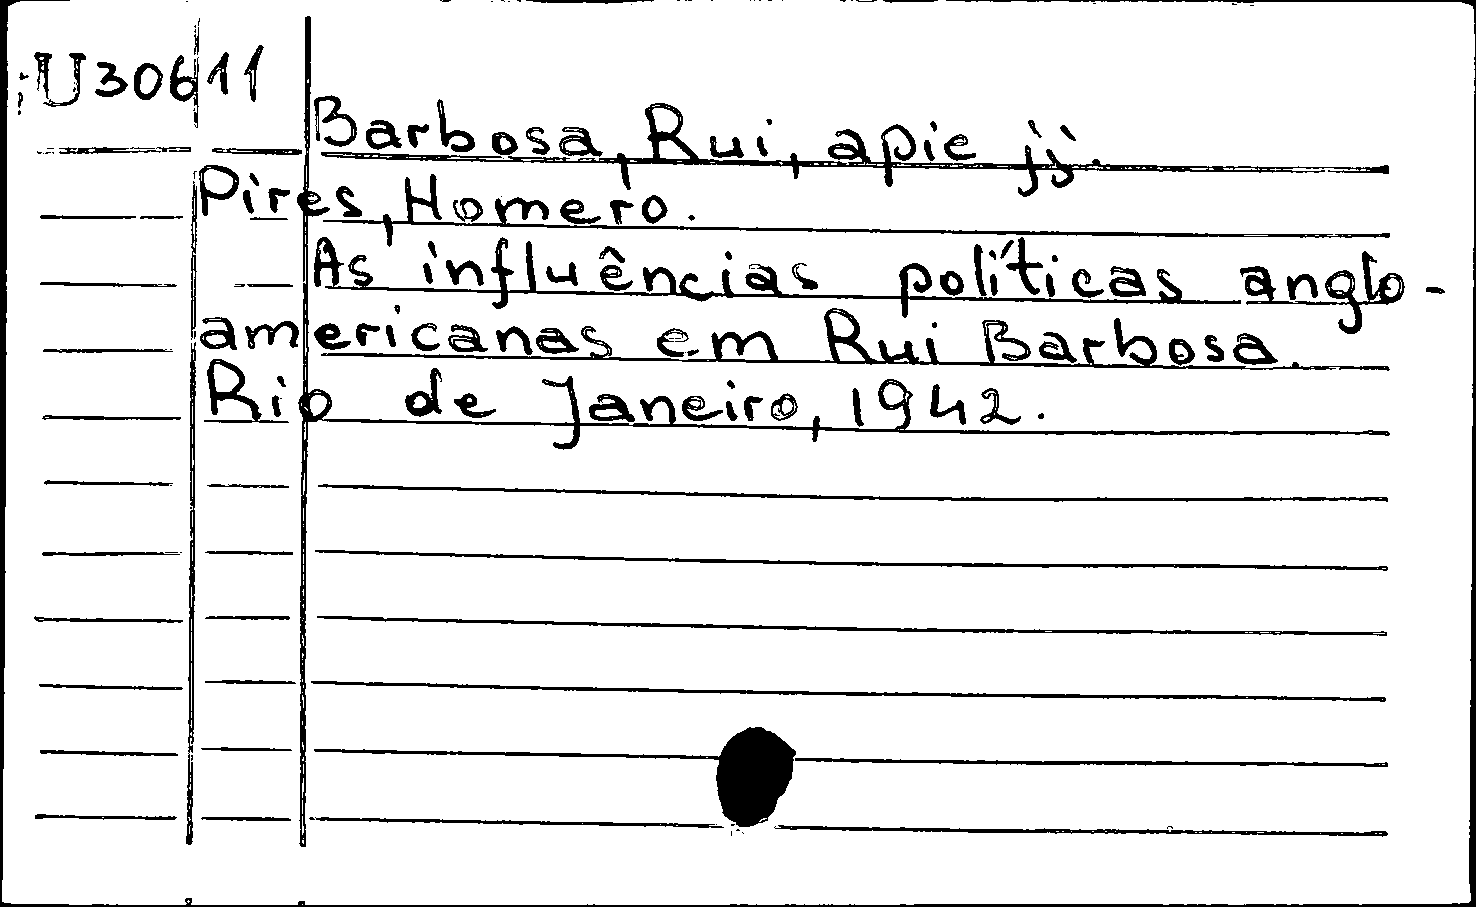 U30611
Barbosa, Rui, apie jį.
Pires, Homero.
As influências políticas anglo-
americanas em Rui Barbosa.
Rio de Janeiro, 1942.